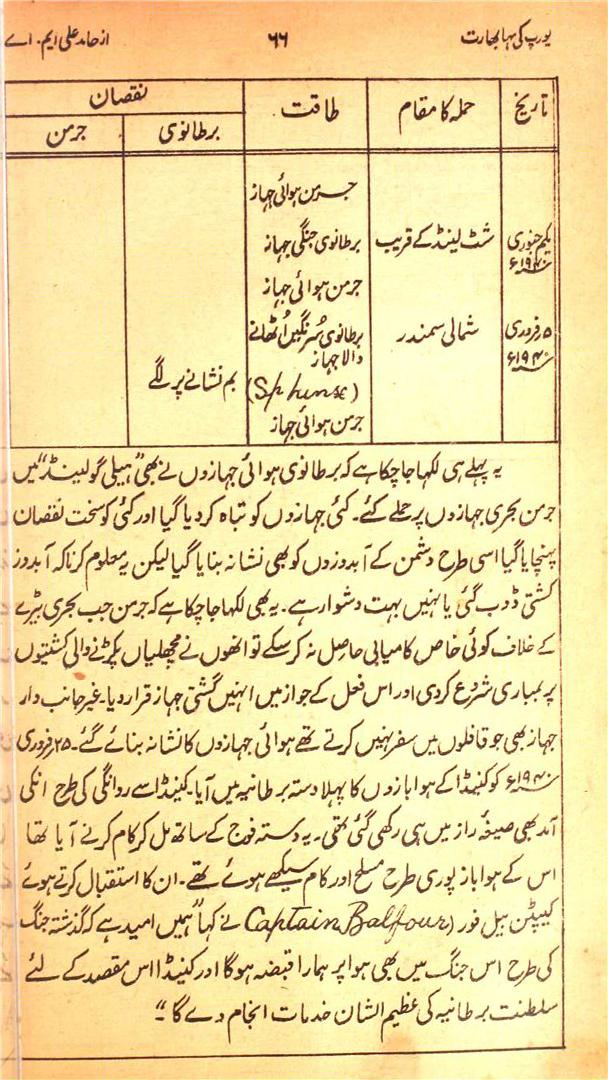 یورپ کی مہا بھارت ۶۶ از حامد علی ایم۔ اے
تاریخ حملہ کا مقام طاقت نقصان
برطانوی جرمن
جرمن ہوائی جہاز
یکم جنوری ۱۹۴۰ء شٹ لینڈ کے قریب برطانوی جنگی جہاز
جرمن ہوائی جہاز
۵ فروری ۱۹۴۰ء شمالی سمندر برطانوی سُرنگیں اُٹھانے
والا جہاز
(Sphinse) بم نشانے پر لگے
جرمن ہوائی جہاز
یہ پہلے ہی لکھا جا چکا ہے کہ برطانوی ہوائی جہازوں نے بھی "ہیلی گولینڈ" میں
جرمن بحری جہازوں پر حملے کئے۔ کئی جہازوں کو تباہ کر دیا گیا اور کئی کو سخت نقصان
پہنچایا گیا اسی طرح دشمن کے آبدوزوں کو بھی نشانہ بنایا گیا لیکن یہ معلوم کرنا کہ آبدوز
کشتی ڈوب گئی یا نہیں بہت دشوار ہے۔ یہ بھی لکھا جا چکا ہے کہ جرمن جب بحری بیڑے
کے خلاف کوئی خاص کامیابی حاصل نہ کر سکے تو انھوں نے مچھلیاں پکڑنے والی کشتیوں
پر بمباری شروع کر دی اور اس فعل کے جواز میں انہیں گشتی جہاز قرار دیا۔ غیر جانب دار
جہاز بھی جو قافلوں میں سفر نہیں کرتے تھے ہوائی جہازوں کا نشانہ بنائے گئے۔ ۲۵ فروری
۱۹۴۰ء کو کنیڈا کے ہوا بازوں کا پہلا دستہ برطانیہ میں آیا۔ کینڈا سے روانگی کی طرح انکی
آمد بھی صیغۂ راز میں ہی رکھی گئی تھی۔ یہ دستہ فوج کے ساتھ مل کر کام کرنے آیا تھا
اس کے ہوا باز پوری طرح مسلح اور کام سیکھے ہوئے تھے۔ ان کا استقبال کرتے ہوئے
کیپٹن بیل فور (Captain Balfour نے کہا "ہمیں امید ہے کہ گذشتہ جنگ
کی طرح اس جنگ میں بھی ہوا پر ہمارا قبضہ ہوگا اور کنیڈا اس مقصد کے لئے
سلطنت برطانیہ کی عظیم الشان خدمات انجام دے گا"۔